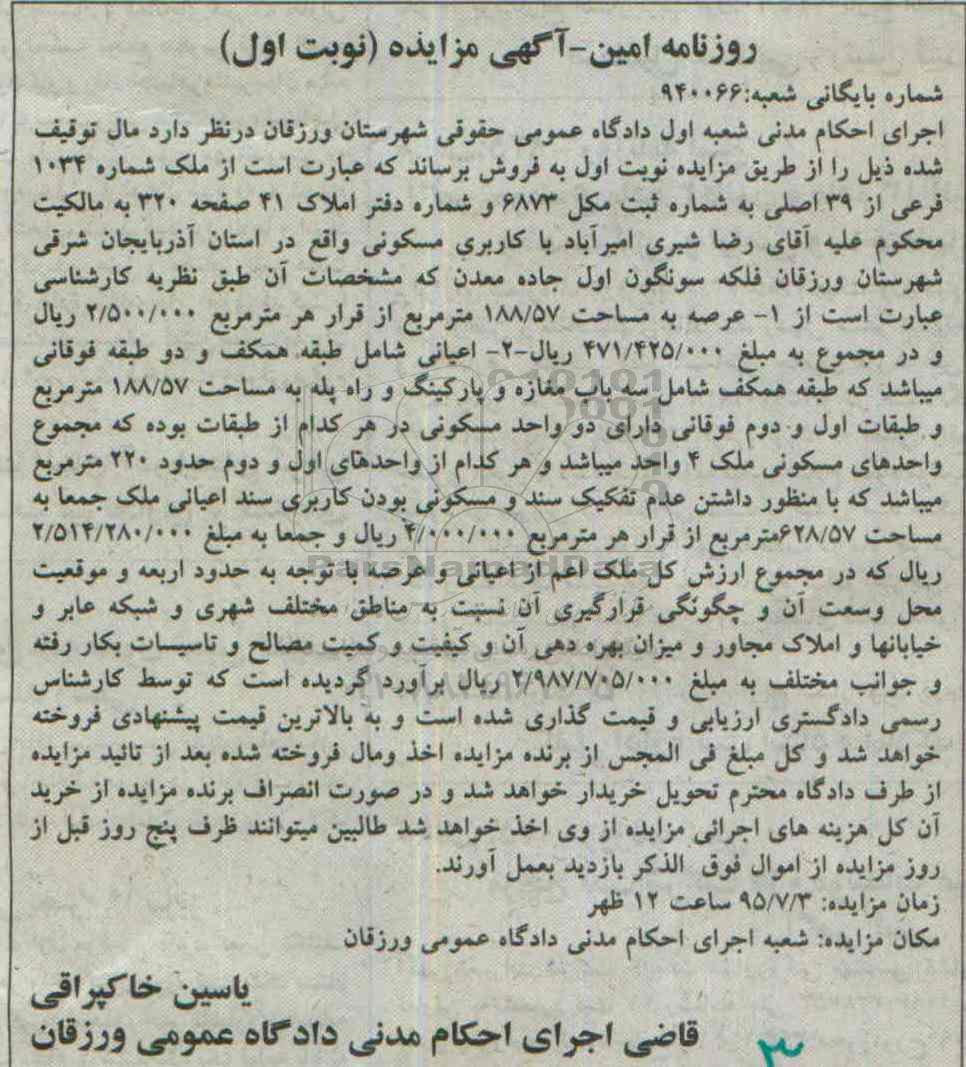 روزنامه امین-آگهی مزایده (نوبت اول)
شماره بایگانی شعبه:۹۴۰۰۶۶
اجرای احکام مدنی شعبه اول دادگاه عمومی حقوقی شهرستان ورزقان درنظر دارد مال توقیف
شده ذیل را از طریق مزایده نوبت اول به فروش برساند که عبارت است از ملک شماره ۱۰۳۴
فرعی از ۳۹ اصلی به شماره ثبت مکل ۶۸۷۳ و شماره دفتر املاک ۴۱ صفحه ۳۲۰ به مالکیت
محکوم علیه آقای رضا شیری امیرآباد با کاربری مسکونی واقع در استان آذربایجان شرقی
شهرستان ورزقان فلکه سونگون اول جاده معدن که مشخصات آن طبق نظریه کارشناسی
عبارت است از ۱- عرصه به مساحت ۱۸۸/۵۷ مترمربع از قرار هر مترمربع ۲/۵۰۰/۰۰۰ ریال
و در مجموع به مبلغ ۴۷۱/۴۲۵/۰۰۰ ریال-۲- اعیانی شامل طبقه همکف و دو طبقه فوقانی
میباشد که طبقه همکف شامل سه باب مغازه و پارکینگ و راه پله به مساحت ۱۸۸/۵۷ مترمربع
و طبقات اول و دوم فوقانی دارای دو واحد مسکونی در هر کدام از طبقات بوده که مجموع
واحدهای مسکونی ملک ۴ واحد میباشد و هر کدام از واحدهای اول و دوم حدود ۲۲۰ مترمربع
میباشد که با منظور داشتن عدم تفکیک سند و مسکونی بودن کاربری سند اعیانی ملک جمعا به
مساحت ۶۲۸/۵۷مترمربع از قرار هر مترمربع ۴/۰۰۰/۰۰۰ ریال و جمعا به مبلغ ۲/۵۱۴/۲۸۰/۰۰۰
ریال که در مجموع ارزش کل ملک اعم از اعیانی و عرصه با توجه به حدود اربعه و موقعیت
محل وسعت آن و چگونگی قرارگیری آن نسبت به مناطق مختلف شهری و شبکه عابر و
خیابانها و املاک مجاور و میزان بهره دهی آن و کیفیت و کمیت مصالح و تاسیسات بکار رفته
و جوانب مختلف به مبلغ ۲/۹۸۷/۷۰۵/۰۰۰ ریال برآورد گردیده است که توسط کارشناس
رسمی دادگستری ارزیابی و قیمت گذاری شده است و به بالاترین قیمت پیشنهادی فروخته
خواهد شد و کل مبلغ فی المجس از برنده مزایده اخذ ومال فروخته شده بعد از تائید مزایده
از طرف دادگاه محترم تحویل خریدار خواهد شد و در صورت انصراف برنده مزایده از خرید
آن کل هزینه های اجرائی مزایده از وی اخذ خواهد شد طالبین میتوانند ظرف پنج روز قبل از
روز مزایده از اموال فوق الذکر بازدید بعمل آورند.
زمان مزایده: ۹۵/۷/۳ ساعت ۱۲ ظهر
مکان مزایده: شعبه اجرای احکام مدنی دادگاه عمومی ورزقان
یاسین خاکپراقی
قاضی اجرای احکام مدنی دادگاه عمومی ورزقان
۳